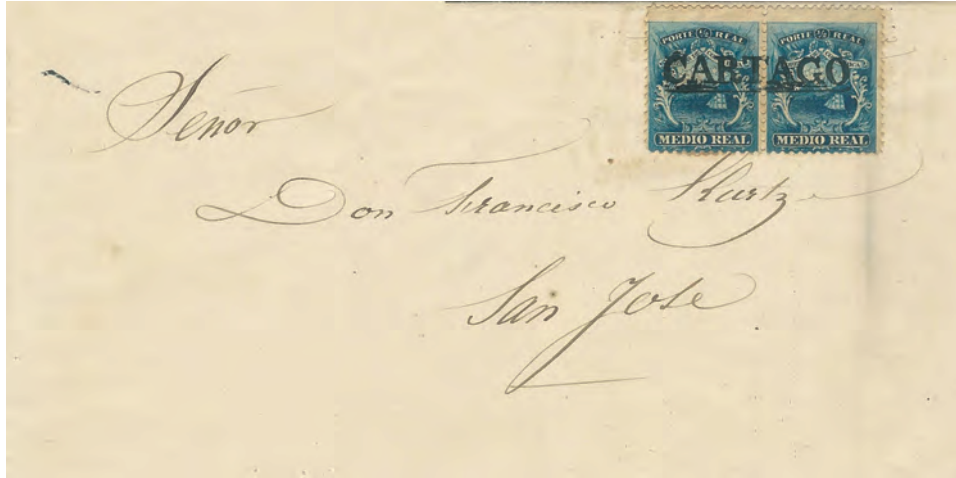 PORTE ½ REAL PORTE ½ REAL
CARTAGO
MEDIO REAL MEDIO REAL
Señor
Don Francisco Kurtze
San Jose